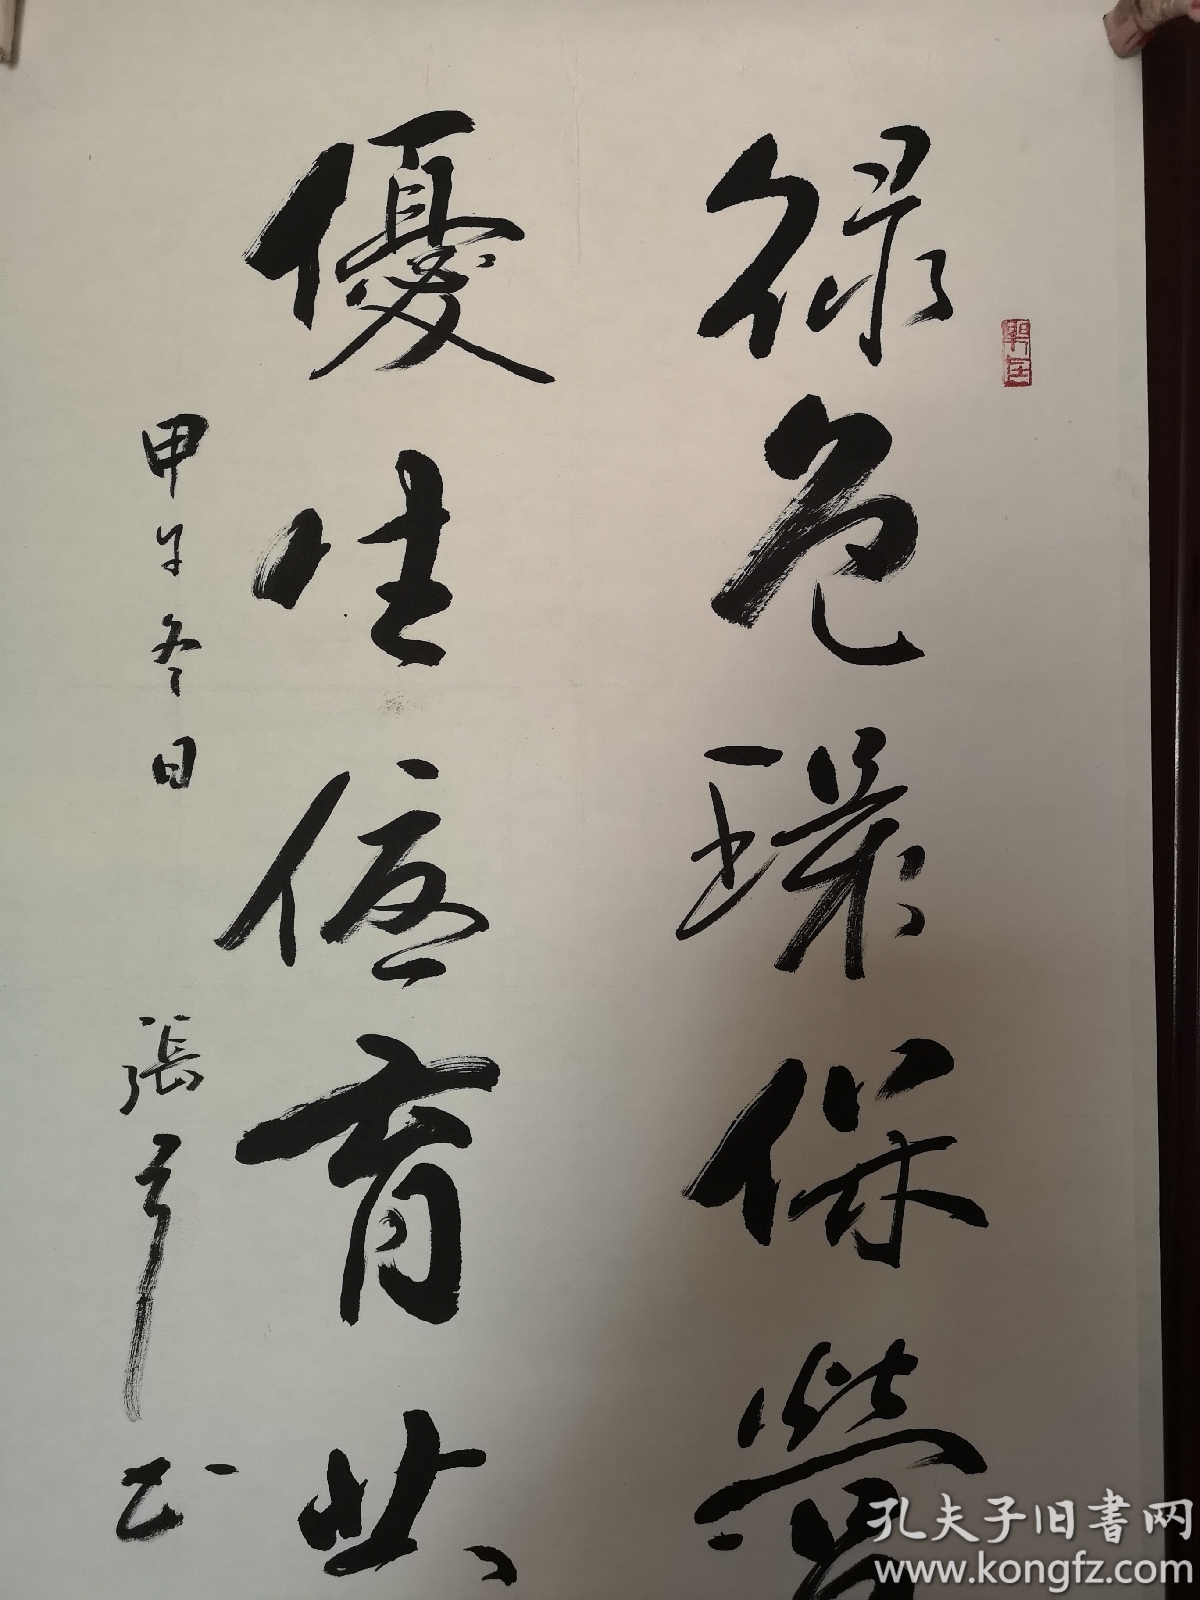 綠色環保營
優生優育共
甲午冬日 張
孔夫子旧書网
www.kongfz.com